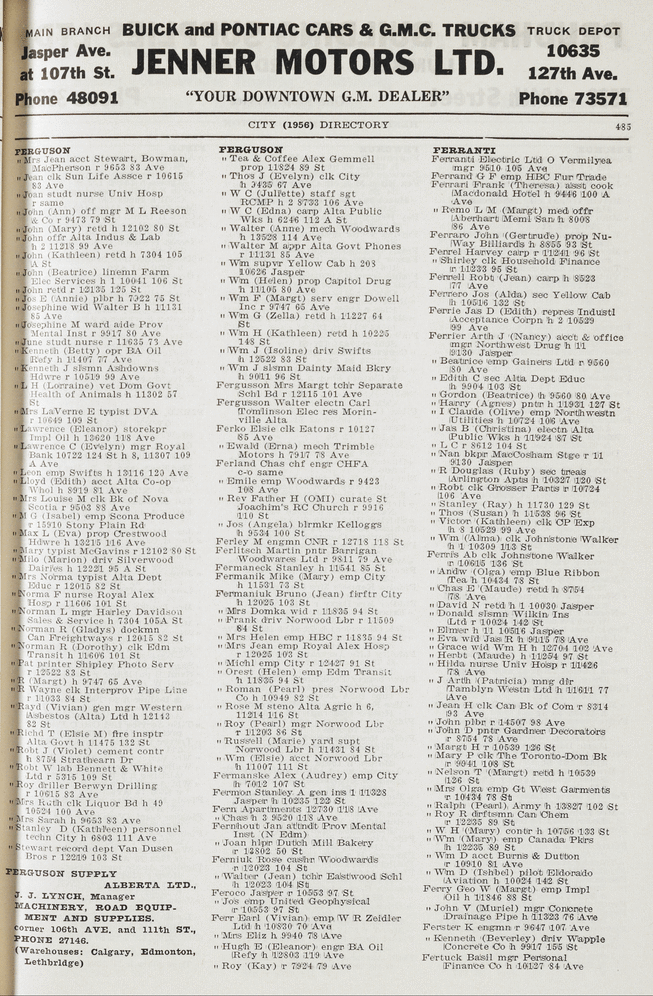 MAIN BRANCH
Jasper Ave.
at 107th St.
Phone 48091
BUICK and PONTIAC CARS & G.M.C. TRUCKS
JENNER MOTORS LTD.
"YOUR DOWNTOWN G.M. DEALER"
TRUCK DEPOT
10635
127th Ave.
Phone 73571
CITY (1956) DIRECTORY 485
FERGUSON
" Mrs Jean acct Stewart, Bowman,
MacPherson r 9653 83 Ave
" Jean clk Sun Life Assce r 10615
83 Ave
" Joan studt nurse Univ Hosp
r same
" John (Ann) off mgr M L Reeson
& Co r 9473 79 St
" John (Mary) retd h 12102 80 St
" John offr Alta Indus & Lab
h 2 11218 99 Ave
" John (Kathleen) retd h 7304 105
A St
" John (Beatrice) linemn Farm
Elec Services h 1 10041 106 St
" John retd r 12135 125 St
" Jos E (Annie) plbr h 7922 75 St
" Josephine wid Walter B h 11131
85 Ave
" Josephine M ward aide Prov
Mental Inst r 9917 80 Ave
" June studt nurse r 11635 73 Ave
" Kenneth (Betty) opr BA Oil
Refy h 11407 77 Ave
" Kenneth J slsmn Ashdowns
Hdwre r 10519 99 Ave
" L H (Lorraine) vet Dom Govt
Health of Animals h 11302 57
St
" Mrs LaVerne E typist DVA
r 10649 109 St
" Lawrence (Eleanor) storekpr
Impl Oil h 13620 118 Ave
" Lawrence C (Evelyn) mgr Royal
Bank 10722 124 St h 8, 11307 109
A Ave
" Leon emp Swifts h 13116 123 Ave
" Lloyd (Edith) acct Alta Co-op
Whol h 8919 81 Ave
" Mrs Louise M clk Bk of Nova
Scotia r 9503 88 Ave
" M G (Isabel) emp Scona Produce
r 15910 Stony Plain Rd
" Max L (Eva) prop Crestwood
Hdwre h 13215 116 Ave
" Mary typist McGavins r 12102 80 St
" Milo (Marion) driv Silverwood
Dairies h 12221 95 A St
" Mrs Norma typist Alta Dept
Educ r 12015 82 St
" Norma F nurse Royal Alex
Hosp r 11606 101 St
" Norman L mgr Harley Davidson
Sales & Service h 7304 105A St
" Norman R (Gladys) dockmn
Can Freightways r 12015 82 St
" Norman R (Dorothy) clk Edm
Transit h 11606 101 St
" Pat printer Shipley Photo Serv
r 12522 83 St
" R (Margt) h 9747 65 Ave
" R Wayne clk Interprov Pipe Line
r 11033 84 St
" Rayd (Vivian) gen mgr Western
Asbestos (Alta) Ltd h 12143
82 St
" Richd T (Elsie M) fire insptr
Alta Govt h 11475 132 St
" Robt J (Violet) cement contr
h 8754 Strathearn Dr
" Robt W lab Bennett & White
Ltd r 5315 109 St
" Roy driller Berwyn Drilling
r 10615 83 Ave
" Mrs Ruth clk Liquor Bd h 49
10524 100 Ave
" Mrs Sarah h 9653 83 Ave
" Stanley D (Kathleen) personnel
techn City h 6803 111 Ave
" Stewart record dept Van Dusen
Bros r 12219 103 St
FERGUSON SUPPLY
ALBERTA LTD.,
J. J. LYNCH, Manager
MACHINERY, ROAD EQUIP-
MENT AND SUPPLIES.
corner 106th AVE. and 111th ST.,
PHONE 27146.
(Warehouses: Calgary, Edmonton,
Lethbridge)
FERGUSON
" Tea & Coffee Alex Gemmell
prop 11824 89 St
" Thos J (Evelyn) clk City
h 9435 67 Ave
" W C (Julfette) staff sgt
RCMP h 2 8733 106 Ave
" W C (Edna) carp Alta Public
Wks h 6246 112 A St
" Walter (Anne) mech Woodwards
h 13528 114 Ave
" Walter M appr Alta Govt Phones
r 11131 85 Ave
" Wm supvr Yellow Cab h 203
10626 Jasper
" Wm (Helen) prop Capitol Drug
h 11105 80 Ave
" Wm F (Margt) serv engr Dowell
Inc r 9747 65 Ave
" Wm G (Zella) retd h 11227 64
St
" Wm H (Kathleen) retd h 10225
148 St
" Wm J (Isoline) driv Swifts
h 12522 83 St
" Wm J slsmn Dainty Maid Bkry
h 9011 96 St
Fergusson Mrs Margt tchr Separate
Schl Bd r 12115 101 Ave
Fergusson Walter electn Carl
Tomlinson Elec res Morin-
ville Alta
Ferko Elsie clk Eatons r 10127
85 Ave
" Ewald (Erna) mech Trimble
Motors h 7917 78 Ave
Ferland Chas chf engr CHFA
c-o same
" Emile emp Woodwards r 9423
108 Ave
" Rev Father H (OMI) curate St
Joachim's RC Church r 9916
110 St
" Jos (Angela) blrmkr Kelloggs
h 9534 100 St
Ferley M engmn CNR r 12718 118 St
Ferlitsch Martin pntr Barrigan
Woodwares Ltd r 9811 79 Ave
Fermaneck Stanley h 11541 85 St
Fermanik Mike (Mary) emp City
h 11531 73 St
Fermaniuk Bruno (Jean) firftr City
h 12025 103 St
" Mrs Domka wid r 11835 94 St
" Frank driv Norwood Lbr r 11509
84 St
" Mrs Helen emp HBC r 11835 94 St
" Mrs Jean emp Royal Alex Hosp
r 12025 103 St
" Michl emp City r 12427 91 St
" Orest (Helen) emp Edm Transit
h 11835 94 St
" Roman (Pearl) pres Norwood Lbr
Co h 10949 82 St
" Rose M steno Alta Agric h 6,
11214 116 St
" Roy (Pearl) mgr Norwood Lbr
r 11203 86 St
" Russell (Marie) yard supt
Norwood Lbr h 11431 84 St
" Wm (Elsie) acct Norwood Lbr
h 11007 111 St
Fermanske Alex (Audrey) emp City
h 7012 107 St
Fermon Stanley A gen ins 1 11328
Jasper h 10235 122 St
Fern Apartments 12730 118 Ave
" Chas h 3 9520 118 Ave
Fernhout Jan attndt Prov Mental
Inst (N Edm)
" Joan hlpr Dutch Mill Bakery
r 12802 50 St
Ferniuk Rose cashr Woodwards
r 12023 104 St
" Walter (Jean) tchr Eastwood Schl
h 12023 104 St
Feroco Jasper r 10553 97 St
" Jos emp United Geophysical
r 10553 97 St
Ferr Earl (Vivian) emp W R Zeidler
Ltd h 10830 70 Ave
" Mrs Eliz h 9940 78 Ave
" Hugh E (Eleanor) engr BA Oil
Refy h 12803 119 Ave
" Roy (Kay) r 7924 79 Ave
FERRANTI
Ferranti Electric Ltd O Vermilyea
mgr 9510 105 Ave
Ferrand G F emp HBC Fur Trade
Ferrari Frank (Theresa) asst cook
Macdonald Hotel h 9446 100 A
Ave
" Remo L M (Margt) med offr
Aberhart Meml San h 8008
86 Ave
Ferraro John (Gertrude) prop Nu-
Way Billiards h 8855 93 St
Ferrel Harvey carp r 11241 96 St
" Shirley clk Household Finance
r 11233 95 St
Ferrell Robt (Jean) carp h 8523
77 Ave
Ferrero Jos (Alda) sec Yellow Cab
h 10516 132 St
Ferrie Jas D (Edith) repres Industl
Acceptance Corpn h 2 10529
99 Ave
Ferrier Arth J (Nancy) acct & office
mgr Northwest Drug h 11
9130 Jasper
" Beatrice emp Gainers Ltd r 9560
80 Ave
" Edith C sec Alta Dept Educ
h 9904 103 St
" Gordon (Beatrice) h 9560 80 Ave
" Harry (Agnes) pntr h 11931 127 St
" I Claude (Olive) emp Northwestn
Utilities h 10724 106 Ave
" Jas B (Christina) electn Alta
Public Wks h 11924 87 St
" L C r 8612 104 St
" Nan bkpr MacCosham Stge r 11
9130 Jasper
" R Douglas (Ruby) sec treas
Arlington Apts h 10327 120 St
" Robt clk Grosser Parts r 10724
106 Ave
" Stanley (Ray) h 11730 129 St
" Thos (Susan) h 11538 96 St
" Victor (Kathleen) clk CP Exp
h 8 10529 99 Ave
" Wm (Alma) clk Johnstone Walker
h 1 10309 113 St
Ferris Ab clk Johnstone Walker
r 10615 136 St
" Andw (Olga) emp Blue Ribbon
Tea h 10434 78 St
" Chas E (Maude) retd h 8754
78 Ave
" David N retd h 1 10030 Jasper
" Donald slsmn Wilkin Ins
Ltd r 10024 142 St
" Elmer h 11 10516 Jasper
" Eva wid Jas R h 9115 78 Ave
" Grace wid Wm H h 12704 102 Ave
" Herbt (Maude) h 11254 97 St
" Hilda nurse Univ Hosp r 11426
78 Ave
" J Arth (Patricia) mng dir
Tamblyn Westn Ltd h 11611 77
Ave
" Jean H clk Can Bk of Com r 8314
93 Ave
" John plbr r 14507 98 Ave
" John D pntr Gardner Decorators
r 8754 78 Ave
" Margt H r 10539 126 St
" Mary P clk The Toronto-Dom Bk
r 9941 108 St
" Nelson T (Margt) retd h 10539
126 St
" Mrs Olga emp Gt West Garments
r 10434 78 St
" Ralph (Pearl) Army h 13827 102 St
" Roy R drftsmn Can Chem
r 12235 89 St
" W H (Mary) contr h 10756 133 St
" Wm (Mary) emp Canada Pkrs
h 12235 89 St
" Wm D acct Burns & Dutton
r 10910 81 Ave
" Wm D (Ishbel) pilot Eldorado
Aviation h 10024 142 St
Ferry Geo W (Margt) emp Impl
Oil h 11846 88 St
" John V (Muriel) mgr Concrete
Drainage Pipe h 11323 76 Ave
Ferster K engmn r 9647 107 Ave
" Kenneth (Beverley) driv Wapple
Concrete Co h 9917 155 St
Fertuck Basil mgr Personal
Finance Co h 10127 84 Ave